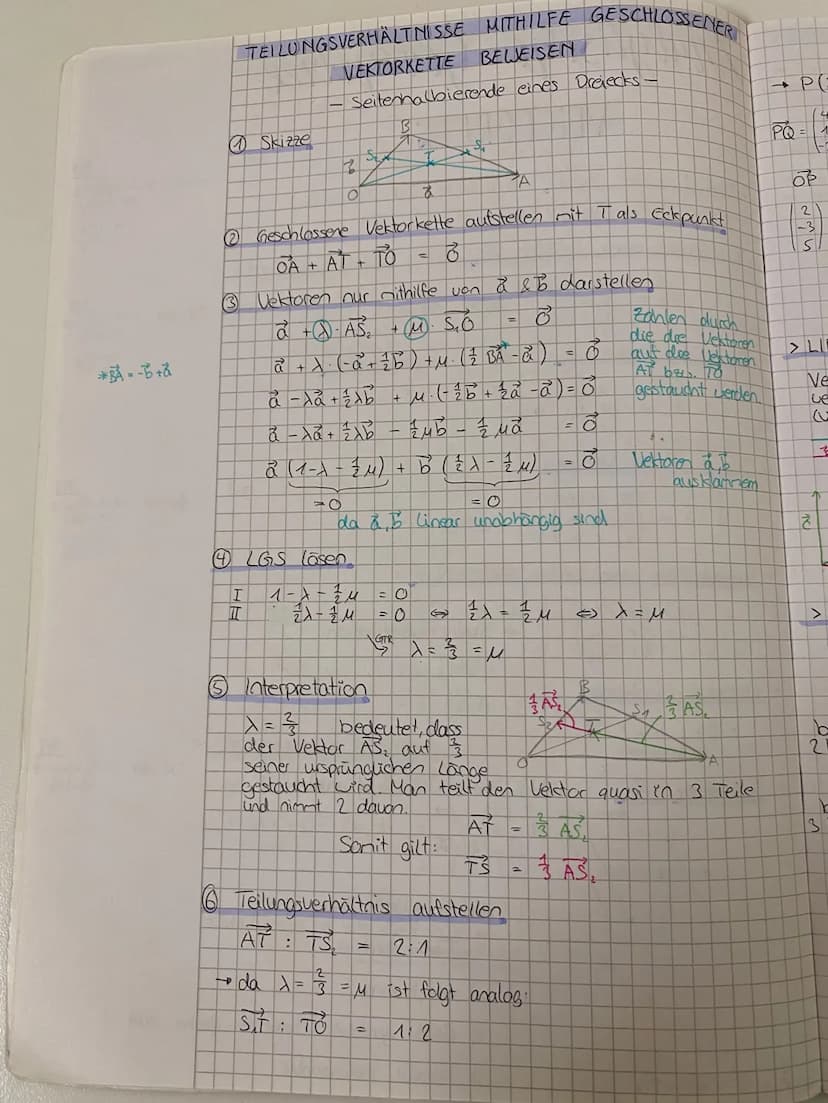 TEILUNGSVERHÄLTNISSE MITHILFE GESCHLOSSENER
VEKTORKETTE BEWEISEN
– Seitenhalbierende eines Dreiecks –
① Skizze
B
S₂
S₁
T
b⃗
O
a⃗
A
② Geschlossene Vektorkette aufstellen mit T als Eckpunkt
OA⃗ + AT⃗ + TO⃗ = 0⃗
③ Vektoren nur mithilfe von a⃗ & b⃗ darstellen
a⃗ + λ · AS₂⃗ + μ · S₁O⃗ = 0⃗
a⃗ + λ · (-a⃗ + ½b⃗) + μ · (½ BA⃗* - a⃗) = 0⃗
a⃗ - λa⃗ + ½λb⃗ + μ · (-½b⃗ + ½a⃗ - a⃗) = 0⃗
a⃗ - λa⃗ + ½λb⃗ - ½μb⃗ - ½μa⃗ = 0⃗
a⃗ (1-λ - ½μ) + b⃗ (½λ - ½μ) = 0⃗
=0 =0
da a⃗, b⃗ linear unabhängig sind
*BA⃗ = -b⃗ + a⃗
Zahlen durch
die die Vektoren
auf die Vektoren
AT⃗ bzw. TO⃗
gestaucht werden
Vektoren a⃗, b⃗
ausklammern
④ LGS lösen
I 1 - λ - ½μ = 0
II ½λ - ½μ = 0 ⇔ ½λ = ½μ ⇔ λ = μ
GTR λ = ⅔ = μ
⑤ Interpretation
λ = ⅔ bedeutet, dass
der Vektor AS₂⃗ auf ⅔
seiner ursprünglichen Länge
gestaucht wird. Man teilt den Vektor quasi in 3 Teile
und nimmt 2 davon.
⅓ AS₂⃗
B
S₁
⅔ AS₂⃗
S₂
T
O
A
Somit gilt:
AT⃗ = ⅔ AS₂⃗
TS⃗ = ⅓ AS₂⃗
⑥ Teilungsverhältnis aufstellen
AT⃗ : TS₂⃗ = 2:1
→ da λ = ⅔ = μ ist folgt analog:
S₁T⃗ : TO⃗ = 1:2
→ P(
PQ⃗ =
OP⃗
2
-3
5
> LI
Ve
c⃗
>
b
2
3